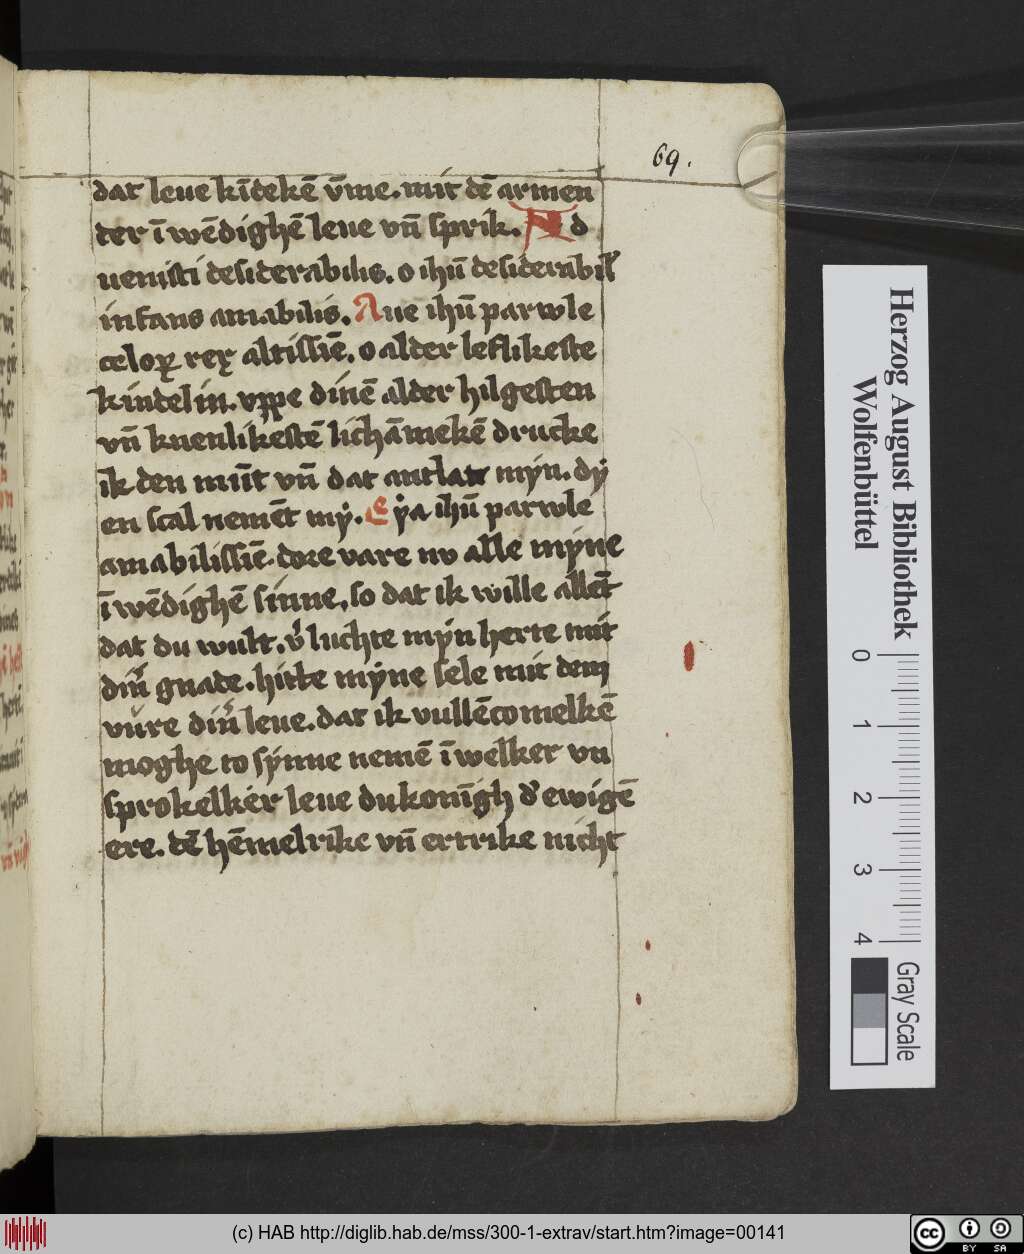 69.
dat leue kīdekē v̄me. mit dē armen
der ī wēdighē leue vn̄ sprik. A d
uenisti desiderabilis. o ihū desiderabil᷒
infans amabilis. Aue ihū parwle
celoꝝ rex altissīe. o alder leflikeste
kindelin. vppe dinē alder hilgesten
vn̄ knenlikestē lichāmekē drucke
ik den mūt vn̄ dat antlat mẏn. dẏ
en scal nemēt mẏ. Eẏa ihū parwle
amabilissīe. dore vare nv alle mẏne
ī wēdighē sinne, so dat ik wille allēt
dat du wult. v̓luchte mẏn herte mit
din̄ gnade. hitte mẏne sele mit dem
vúre din̄ leue. dat ik vullēcomelkē
moghe to sẏnne nemē ī welker vn
sprokelker leue du konīgh d̓ ewigē
ere. dē hēmelrike vn̄ ertrike nicht
Herzog August Bibliothek
Wolfenbüttel
0
1
2
3
4
Gray Scale
(c) HAB http://diglib.hab.de/mss/300-1-extrav/start.htm?image=00141
cc
BY SA